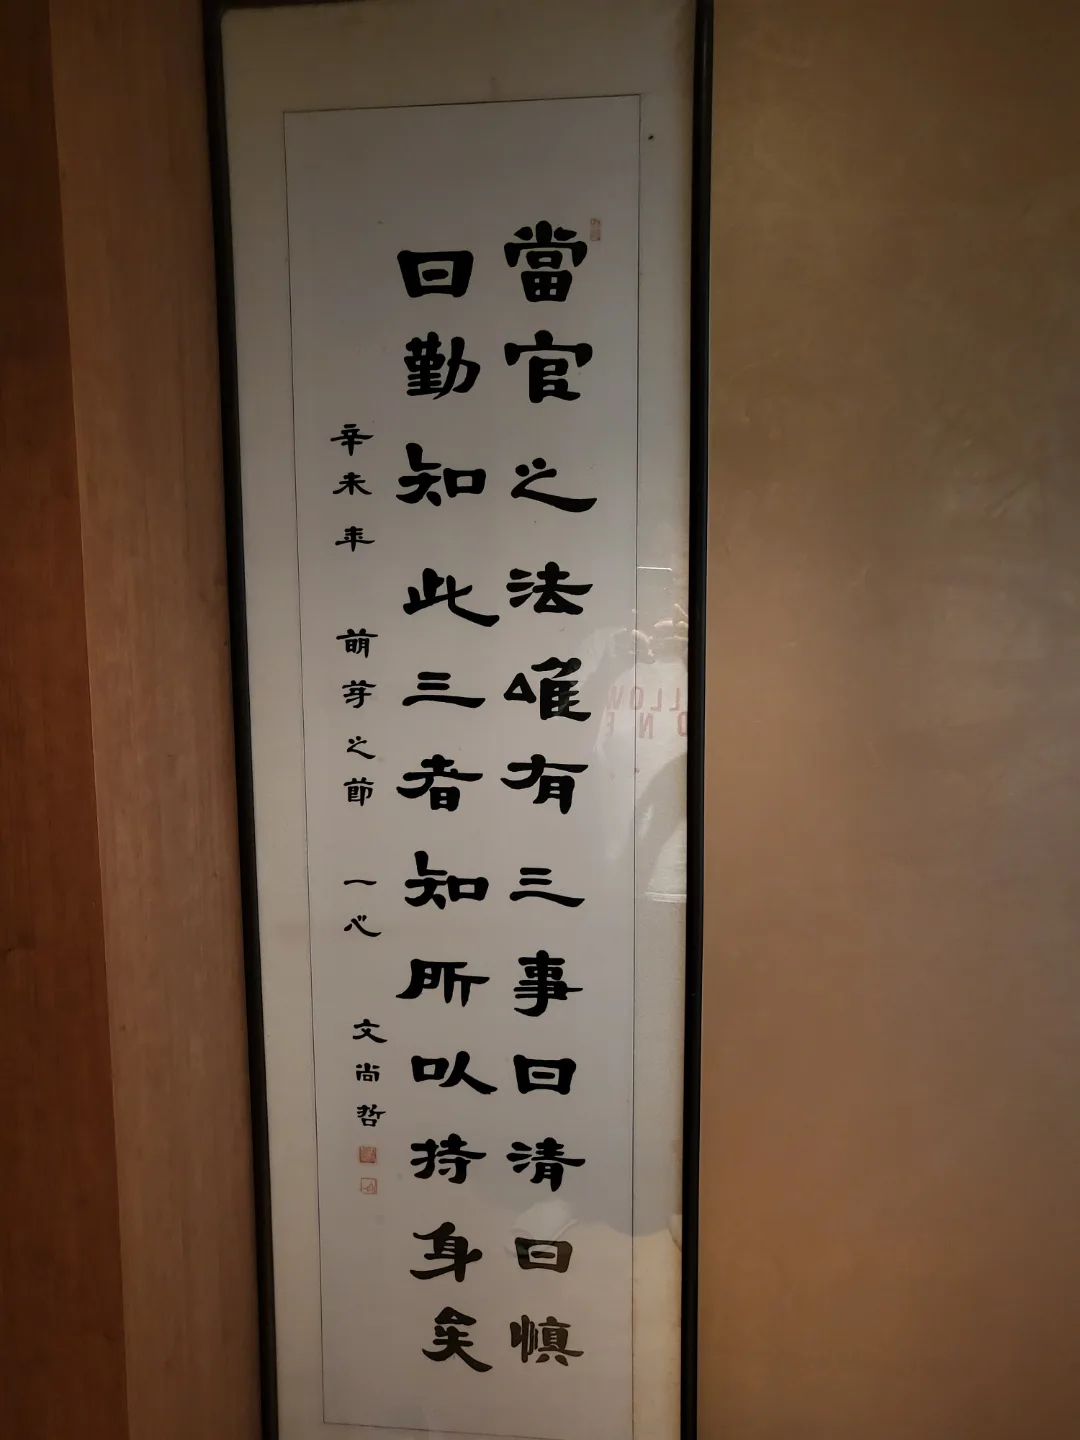 當官之法唯有三事曰清曰慎
曰勤知此三者知所以持身矣
辛未年 萌芽之節 一心 文尚哲